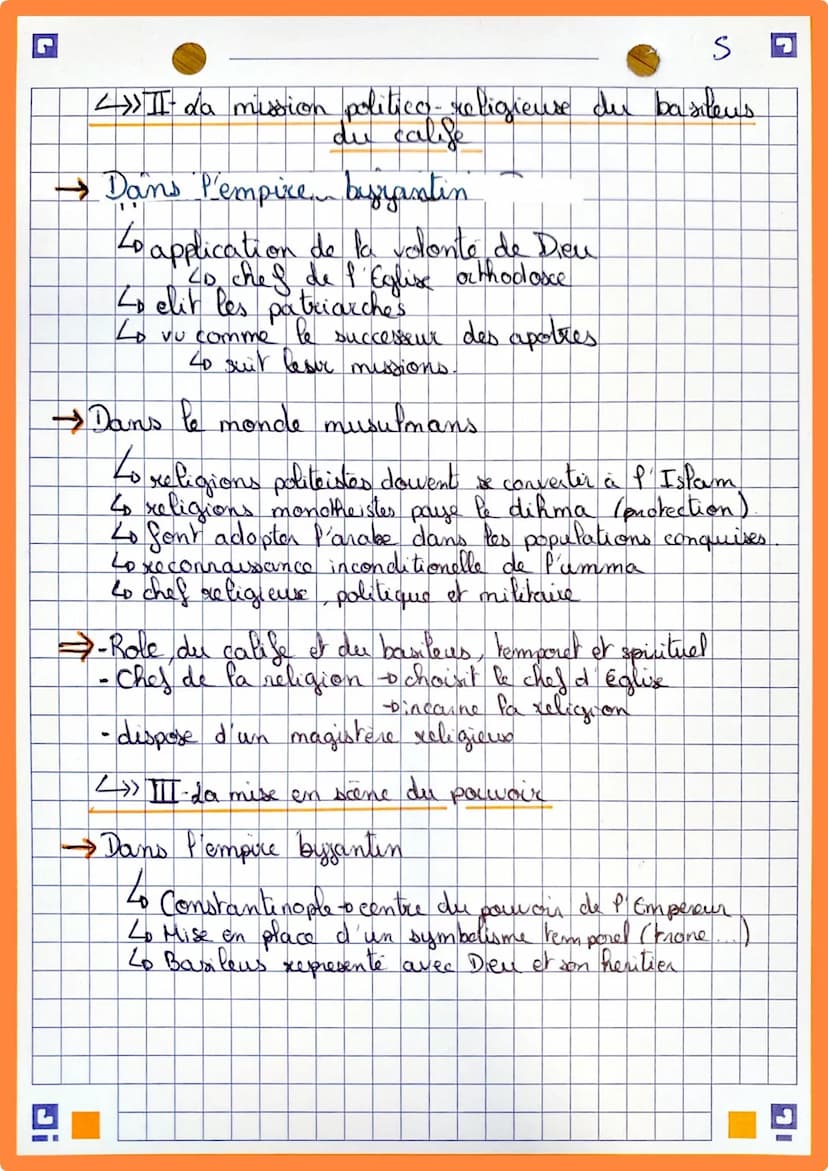 S
↳» II- La mission politico-religieuse du basileus
du calife
→ Dans l'empire byzantin
↳ application de la volonté de Dieu
↳ chef de l'Eglise orthodoxe
↳ elit les patriarches
↳ vu comme le successeur des apotres
↳ suit leur missions.
→ Dans le monde musulmans
↳ religions politeistes doivent se convertir à l'Islam
↳ religions monotheistes paye le dihma (protection)
↳ font adopter l'arabe dans les populations conquises.
↳ reconnaissance inconditionelle de l'umma
↳ chef religieux, politique et militaire
⇒ - Role du calife et du basileus, temporel et spirituel
- Chef de la religion → choisit le chef d'église
→ incarne la religion
- dispose d'un magistère religieux
↳» III- La mise en scène du pouvoir
→ Dans l'empire byzantin
↳ Constantinople → centre du pouvoir de l'Empereur
↳ Mise en place d'un symbolisme temporel (trone...)
↳ Basileus representé avec Dieu et son heritier